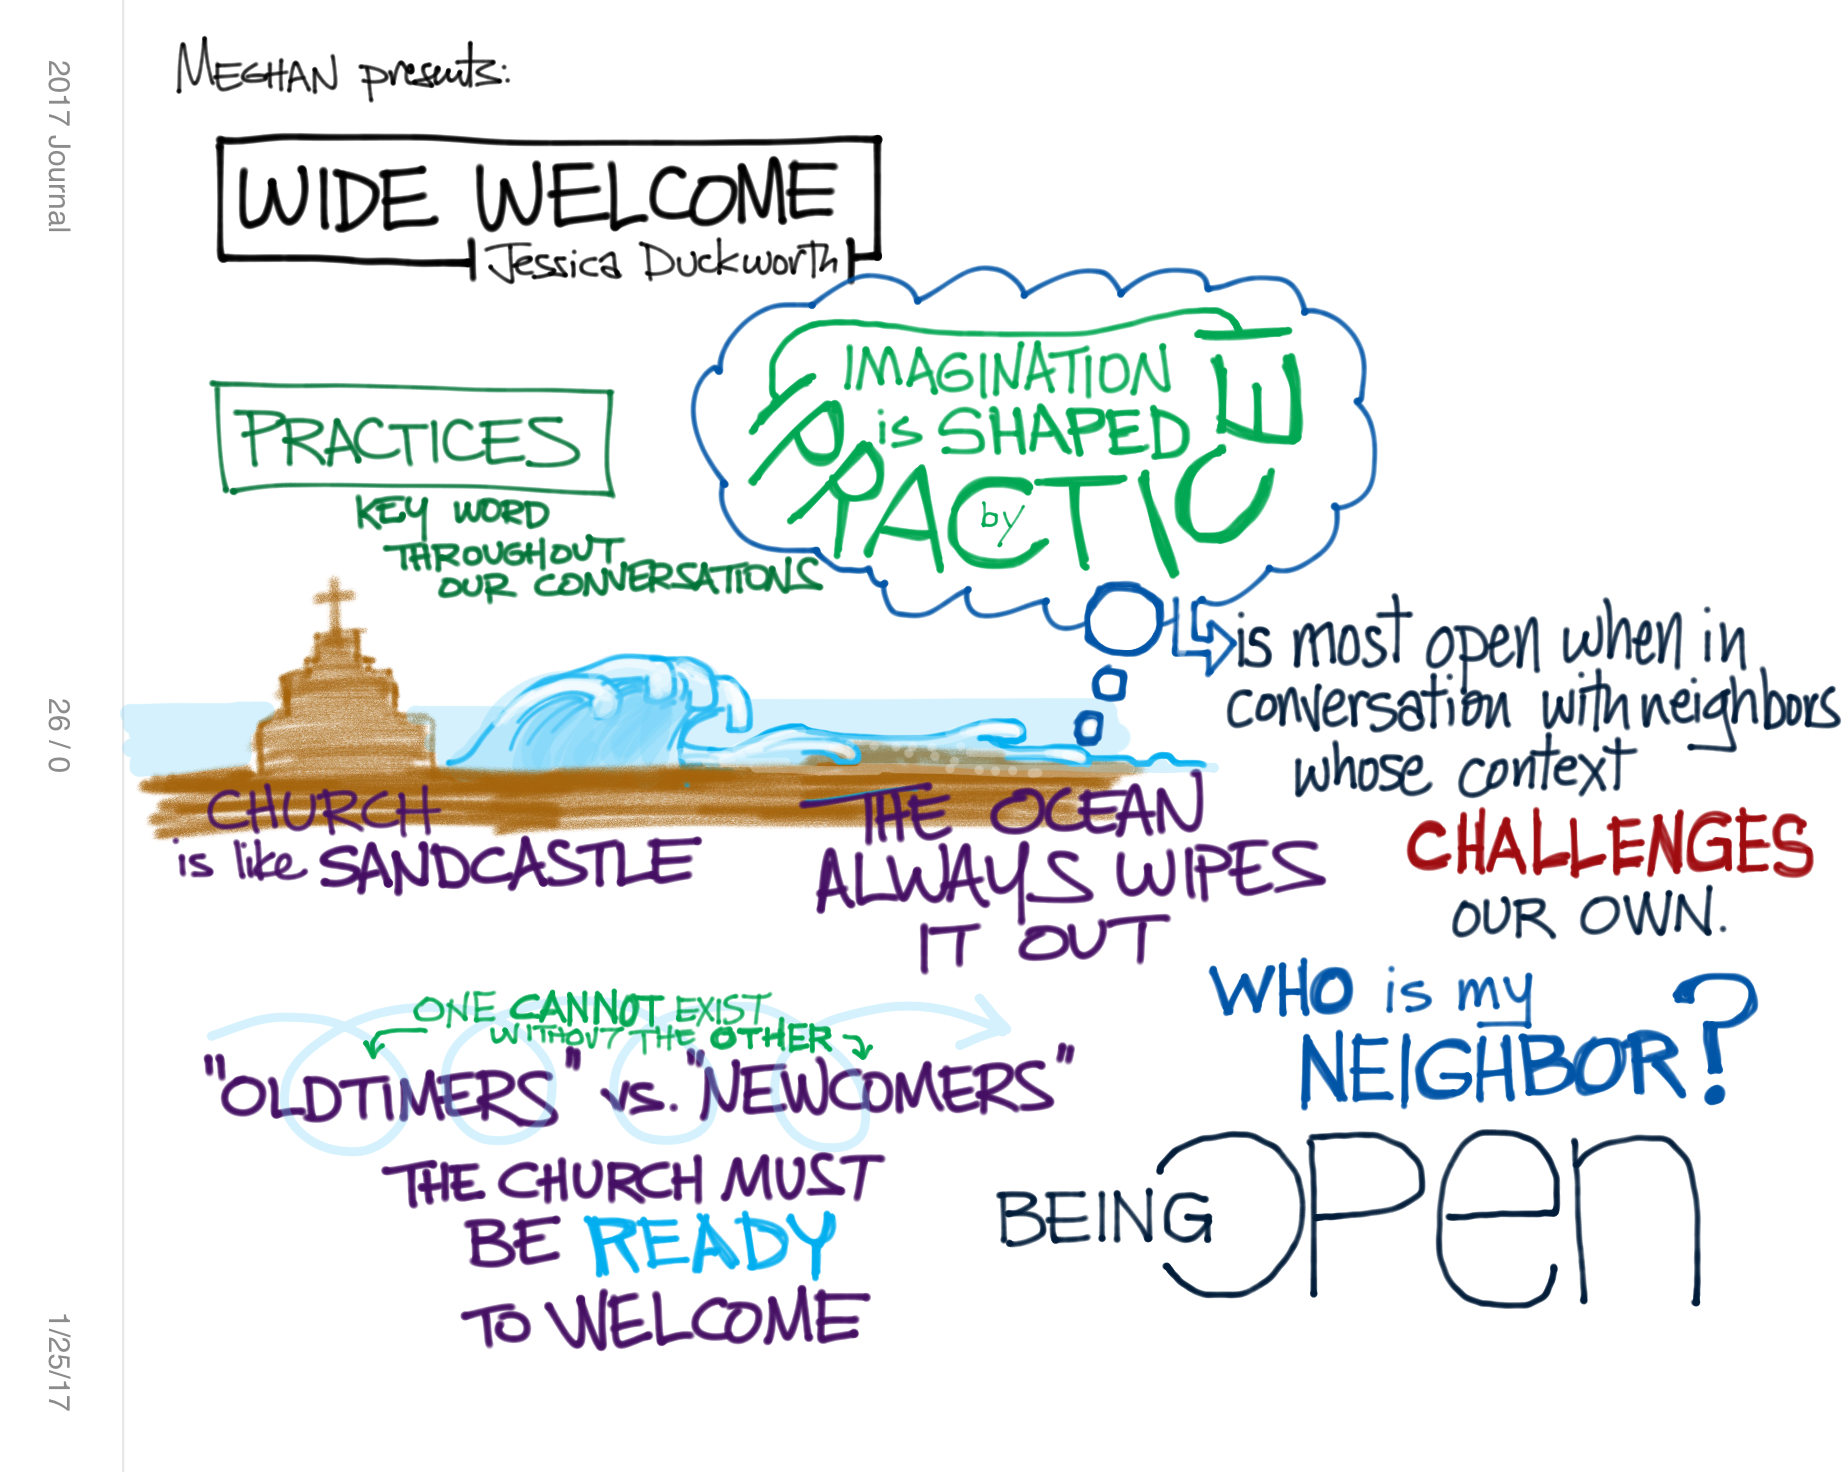 2017 Journal
26 / 0
1/25/17
MEGHAN presents:
WIDE WELCOME
Jessica Duckworth
PRACTICES
KEY WORD
THROUGHOUT
OUR CONVERSATIONS
IMAGINATION
is SHAPED
by
PRACTICE
is most open when in
conversation with neighbors
whose context
CHALLENGES
OUR OWN.
CHURCH
is like SANDCASTLE
THE OCEAN
ALWAYS WIPES
IT OUT
WHO is my
NEIGHBOR?
ONE CANNOT EXIST
WITHOUT THE OTHER
"OLDTIMERS" vs. "NEWCOMERS"
THE CHURCH MUST
BE READY
TO WELCOME
BEING OPEN